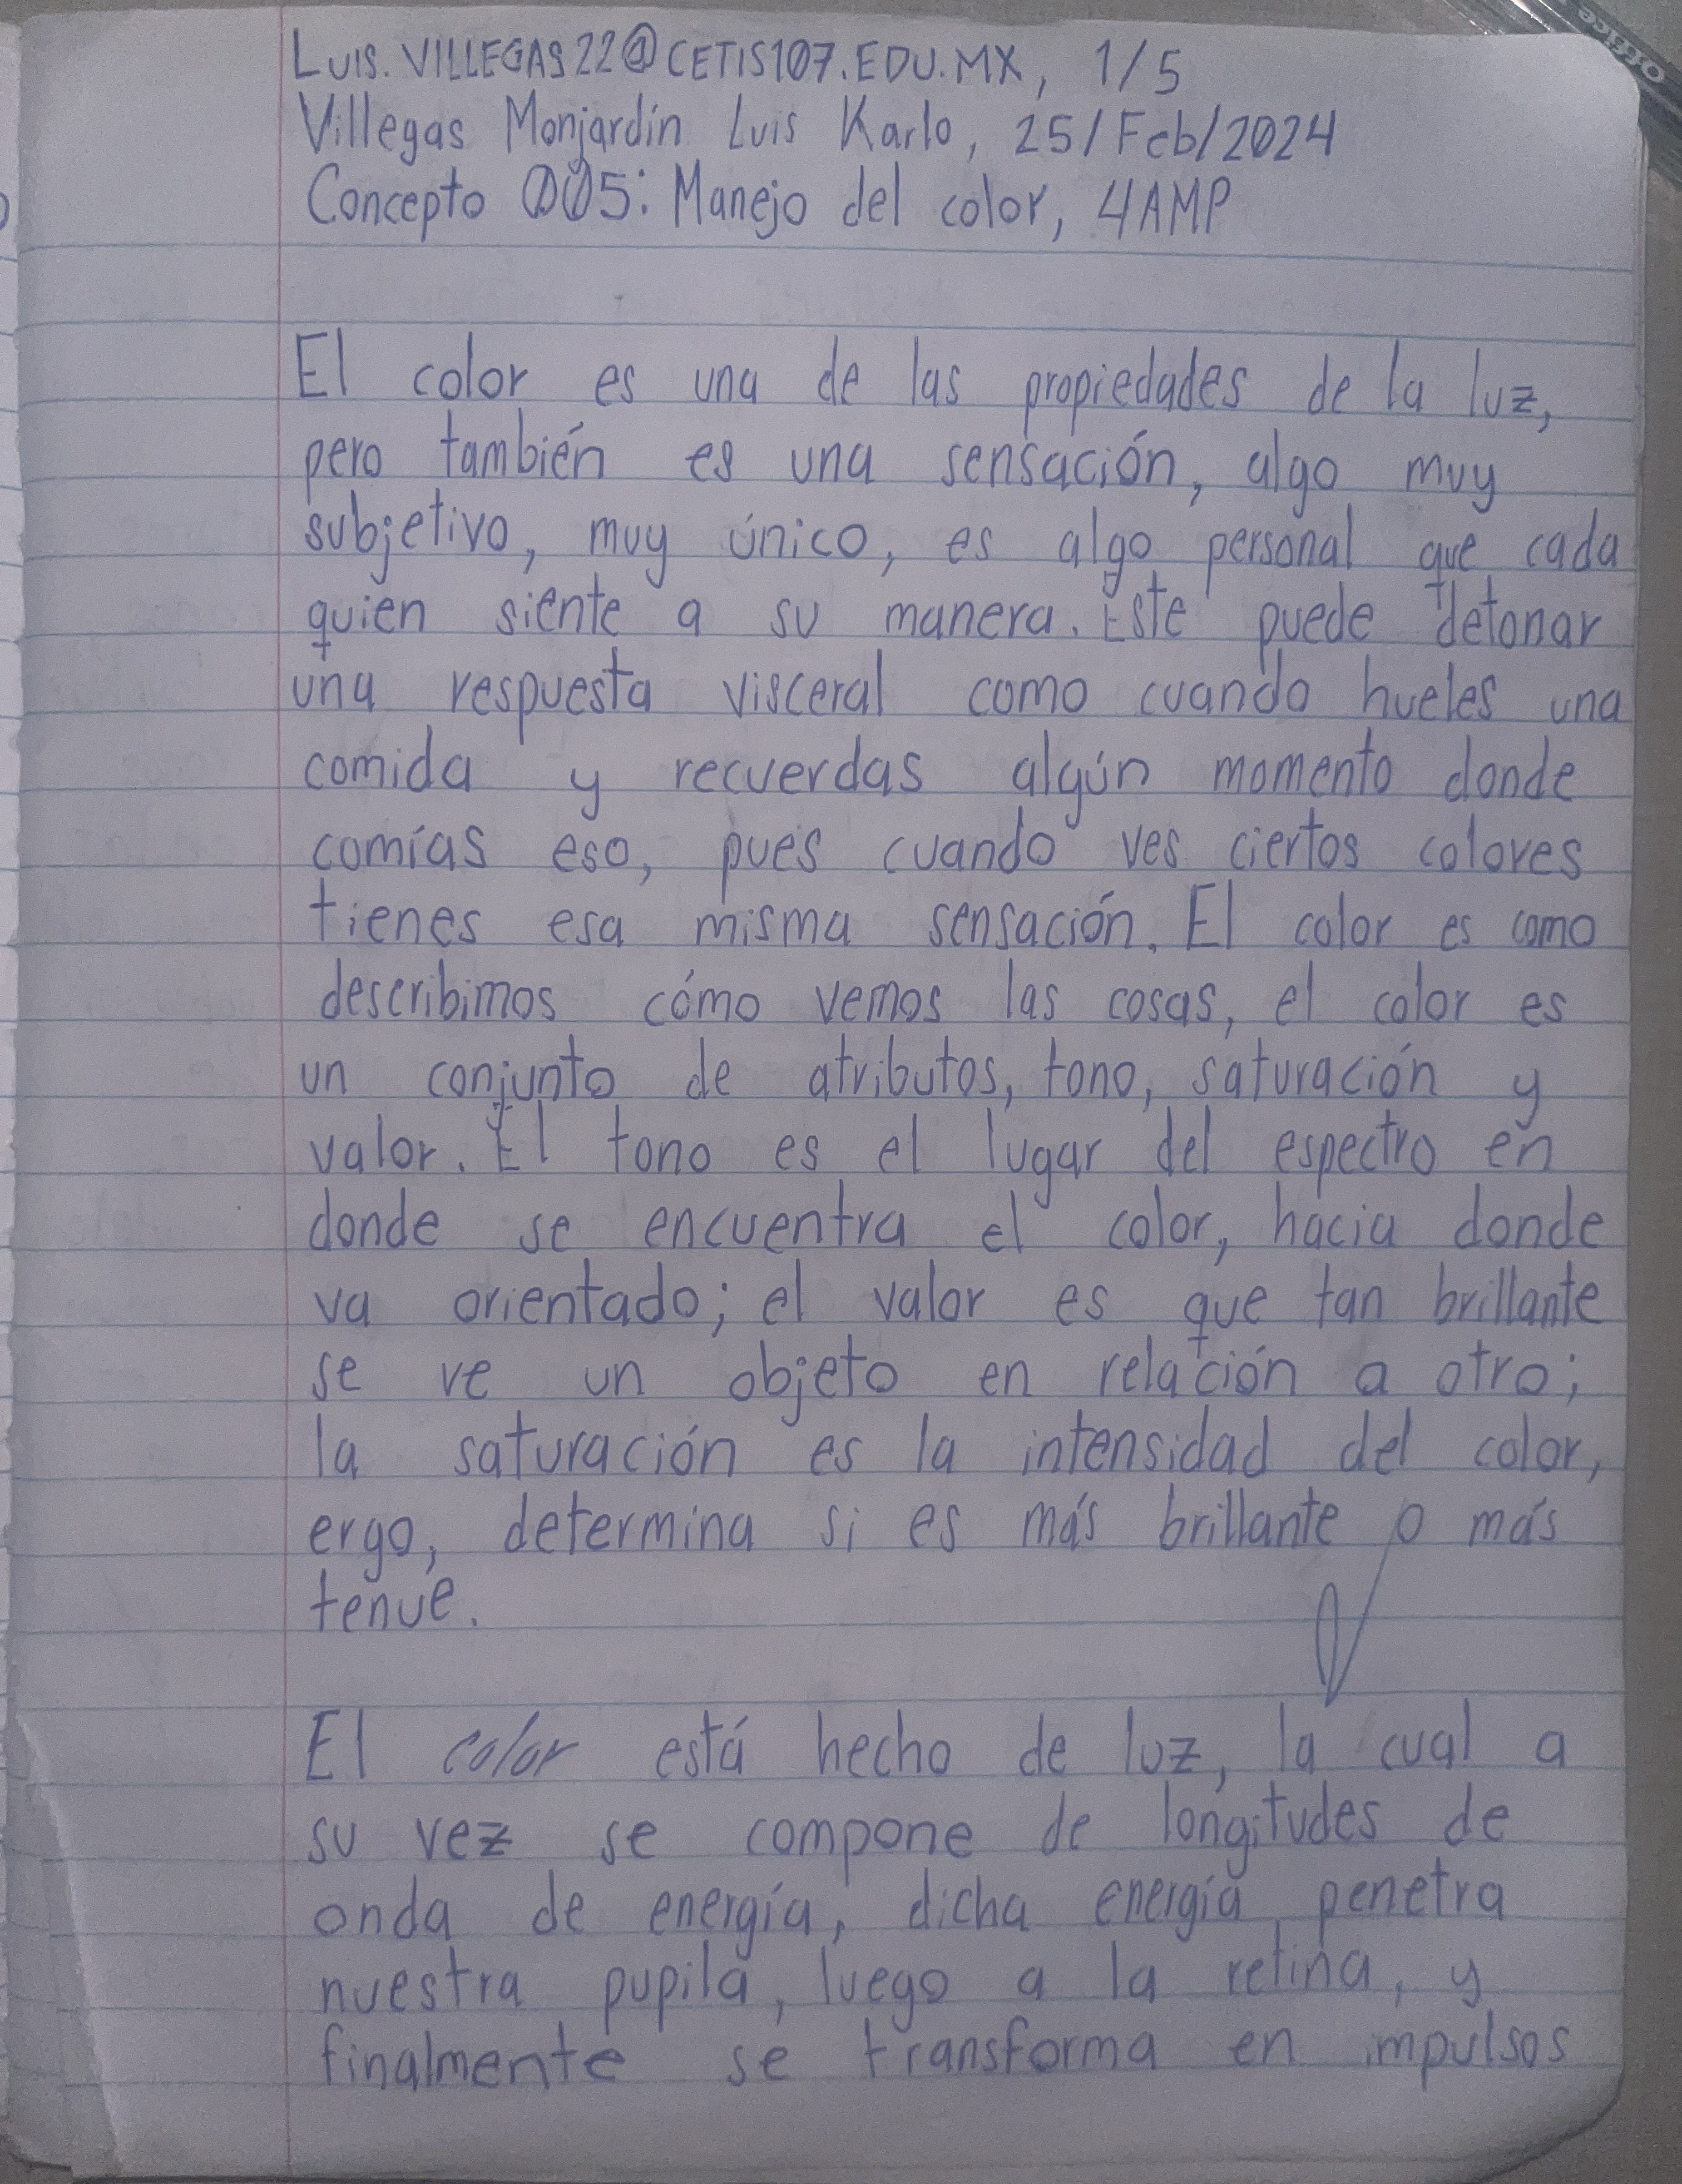 LUIS.VILLEGAS22@CETIS107.EDU.MX, 1/5
Villegas Monjardín Luis Karlo, 25/Feb/2024
Concepto 005: Manejo del color, 4AMP
El color es una de las propiedades de la luz,
pero también es una sensación, algo muy
subjetivo, muy único, es algo personal que cada
quien siente a su manera. Este puede detonar
una respuesta visceral como cuando hueles una
comida y recuerdas algún momento donde
comías eso, pues cuando ves ciertos colores
tienes esa misma sensación. El color es como
describimos cómo vemos las cosas, el color es
un conjunto de atributos, tono, saturación y
valor. El tono es el lugar del espectro en
donde se encuentra el color, hacia donde
va orientado; el valor es que tan brillante
se ve un objeto en relación a otro;
la saturación es la intensidad del color,
ergo, determina si es más brillante o más
tenue.
El color está hecho de luz, la cual a
su vez se compone de longitudes de
onda de energía, dicha energía penetra
nuestra pupila, luego a la retina, y
finalmente se transforma en impulsos
Office